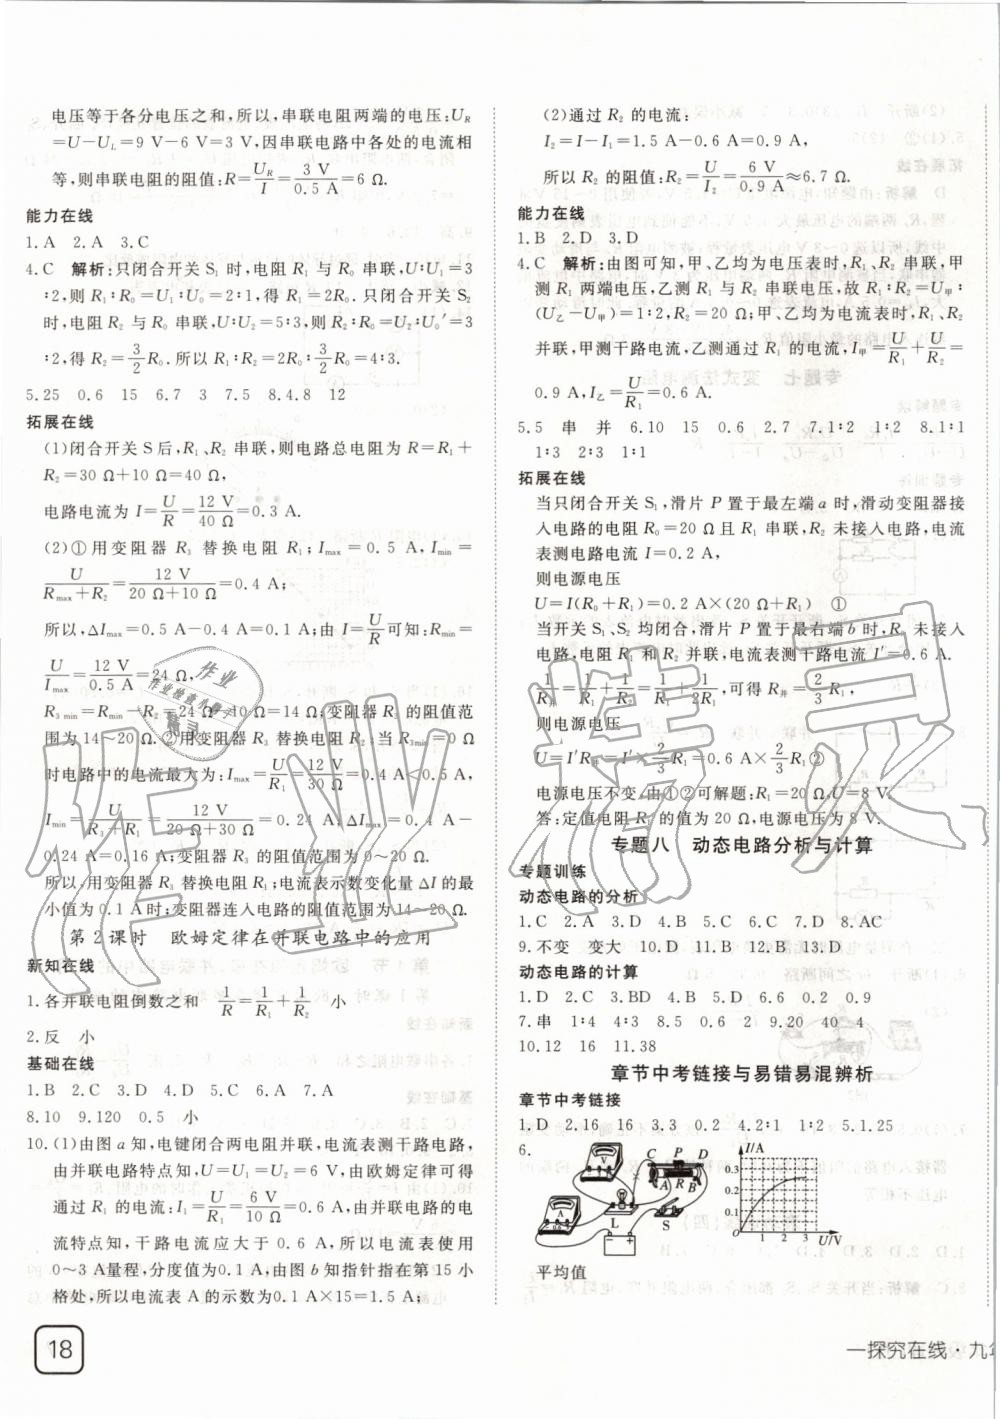 电压等于各分电压之和,所以,串联电阻两端的电压:U_R
=U-U_L=9 V-6 V=3 V,因串联电路中各处的电流相
等,则串联电阻的阻值:R=U_R/I=3 V/0.5 A=6 Ω.
能力在线
1.A 2.A 3.C
4.C 解析:只闭合开关 S₁ 时,电阻 R₁ 与 R₀ 串联,U∶U₁=3
∶2,则 R₁∶R₀=U₁∶U₀=2∶1,得 R₁=2R₀.只闭合开关 S₂
时,电阻 R₂ 与 R₀ 串联,U∶U₂=5∶3,则 R₂∶R₀=U₂∶U₀′=3
∶2,得 R₂=3/2R₀.所以 R₁∶R₂=2R₀∶3/2R₀=4∶3.
5.25 0.6 15 6.7 3 7.5 8.4.8 12
拓展在线
(1)闭合开关 S 后,R₁、R₂ 串联,则电路总电阻为 R=R₁+
R₂=30 Ω+10 Ω=40 Ω,
电路电流为 I=U/R=12 V/40 Ω=0.3 A.
(2)①用变阻器 R₃ 替换电阻 R₁;I_max=0.5 A,I_min=
U/(R_max+R₂)=12 V/(20 Ω+10 Ω)=0.4 A;
所以,ΔI_max=0.5 A-0.4 A=0.1 A;由 I=U/R可知:R_min=
U/I_max=12 V/0.5 A=24 Ω,
R₃min=R_min-R₂=24 Ω-10 Ω=14 Ω;变阻器 R₃ 的阻值范
围为 14~20 Ω.②用变阻器 R₃ 替换电阻 R₂;当 R₃min=0 Ω
时电路中的电流最大为:I_max=U/R₁=12 V/30 Ω=0.4 A<0.5 A,
I_min=U/(R₃+R₁)=12 V/(20 Ω+30 Ω)=0.24 A;ΔI_max=0.4 A-
0.24 A=0.16 A;变阻器 R₃ 的阻值范围为 0~20 Ω.
所以,用变阻器 R₃ 替换电阻 R₁;电流表示数变化量 ΔI 的最
小值为 0.1 A 时;变阻器连入电路的阻值范围为 14~20 Ω.
第 2 课时 欧姆定律在并联电路中的应用
新知在线
1.各并联电阻倒数之和 1/R=1/R₁+1/R₂ 小
2.反 小
基础在线
1.B 2.C 3.D 4.D 5.C 6.A 7.A
8.10 9.120 0.5 小
10.(1)由图 a 知,电键闭合两电阻并联,电流表测干路电路,
由并联电路特点知,U=U₁=U₂=6 V,由欧姆定律可得
通过 R₁ 的电流:I₁=U/R₁=6 V/10 Ω=0.6 A,由并联电路的电
流特点知,干路电流应大于 0.6 A,所以电流表使用
0~3 A量程,分度值为0.1 A,由图 b 知指针指在第 15 小
格处,所以电流表 A 的示数为 0.1 A×15=1.5 A;
18
(2)通过 R₂ 的电流:
I₂=I-I₁=1.5 A-0.6 A=0.9 A,
所以 R₂ 的阻值:R₂=U/I₂=6 V/0.9 A≈6.7 Ω.
能力在线
1.B 2.D 3.D
4.C 解析:由图可知,甲、乙均为电压表时,R₁、R₂ 串联,甲
测 R₁ 两端电压,乙测 R₁ 与 R₂ 串联电压,故 R₁∶R₂=U甲∶
(U乙-U甲)=1∶2,R₂=20 Ω;甲、乙均为电流表时,R₁、R₂
并联,甲测干路电流,乙测通过 R₁ 的电流,I甲=U/R₁+U/R₂=
0.9 A,I乙=U/R₁=0.6 A.
5.5 串 并 6.10 15 0.6 2.7 7.1∶2 1∶2 8.1∶1
1∶3 2∶3 1∶1
拓展在线
当只闭合开关 S₁,滑片 P 置于最左端 a 时,滑动变阻器接
入电路的电阻 R₀=20 Ω 且 R₁ 串联,R₂ 未接入电路,电流
表测电路电流 I=0.2 A,
则电源电压
U=I(R₀+R₁)=0.2 A×(20 Ω+R₁) ①
当开关 S₁、S₂ 均闭合,滑片 P 置于最右端 b 时,R₀ 未接入
电路,电阻 R₁ 和 R₂ 并联,电流表测干路电流 I′=0.6 A.
1/R并=1/R₁+1/R₂,可得 R并=2/3R₁,
则电源电压
U=I′R并=I′×2/3R₁=0.6 A×2/3R₁②
电源电压不变,由①②可解题:R₁=20 Ω,U=8 V.
答:定值电阻 R₁ 的值为 20 Ω,电源电压为 8 V.
专题八 动态电路分析与计算
专题训练
动态电路的分析
1.C 2.A 3.D 4.B 5.C 6.C 7.D 8.AC
9.不变 变大 10.D 11.B 12.B 13.D
动态电路的计算
1.D 2.C 3.BD 4.B 5.D 6.6 0.2 0.9
7.串 1∶4 4∶3 8.5 0.6 2 9.20 40 4
10.12 16 11.38
章节中考链接与易错易混辨析
章节中考链接
1.D 2.16 16 3.3 0.2 4.2∶1 1∶2 5.1.25
6.
V C P D A R B A L S
I/A 0.3 0.2 0.1 0 1 2 3 U/V
平均值
一探究在线·九年
作业精灵
作业
作业检查小帮手
精灵